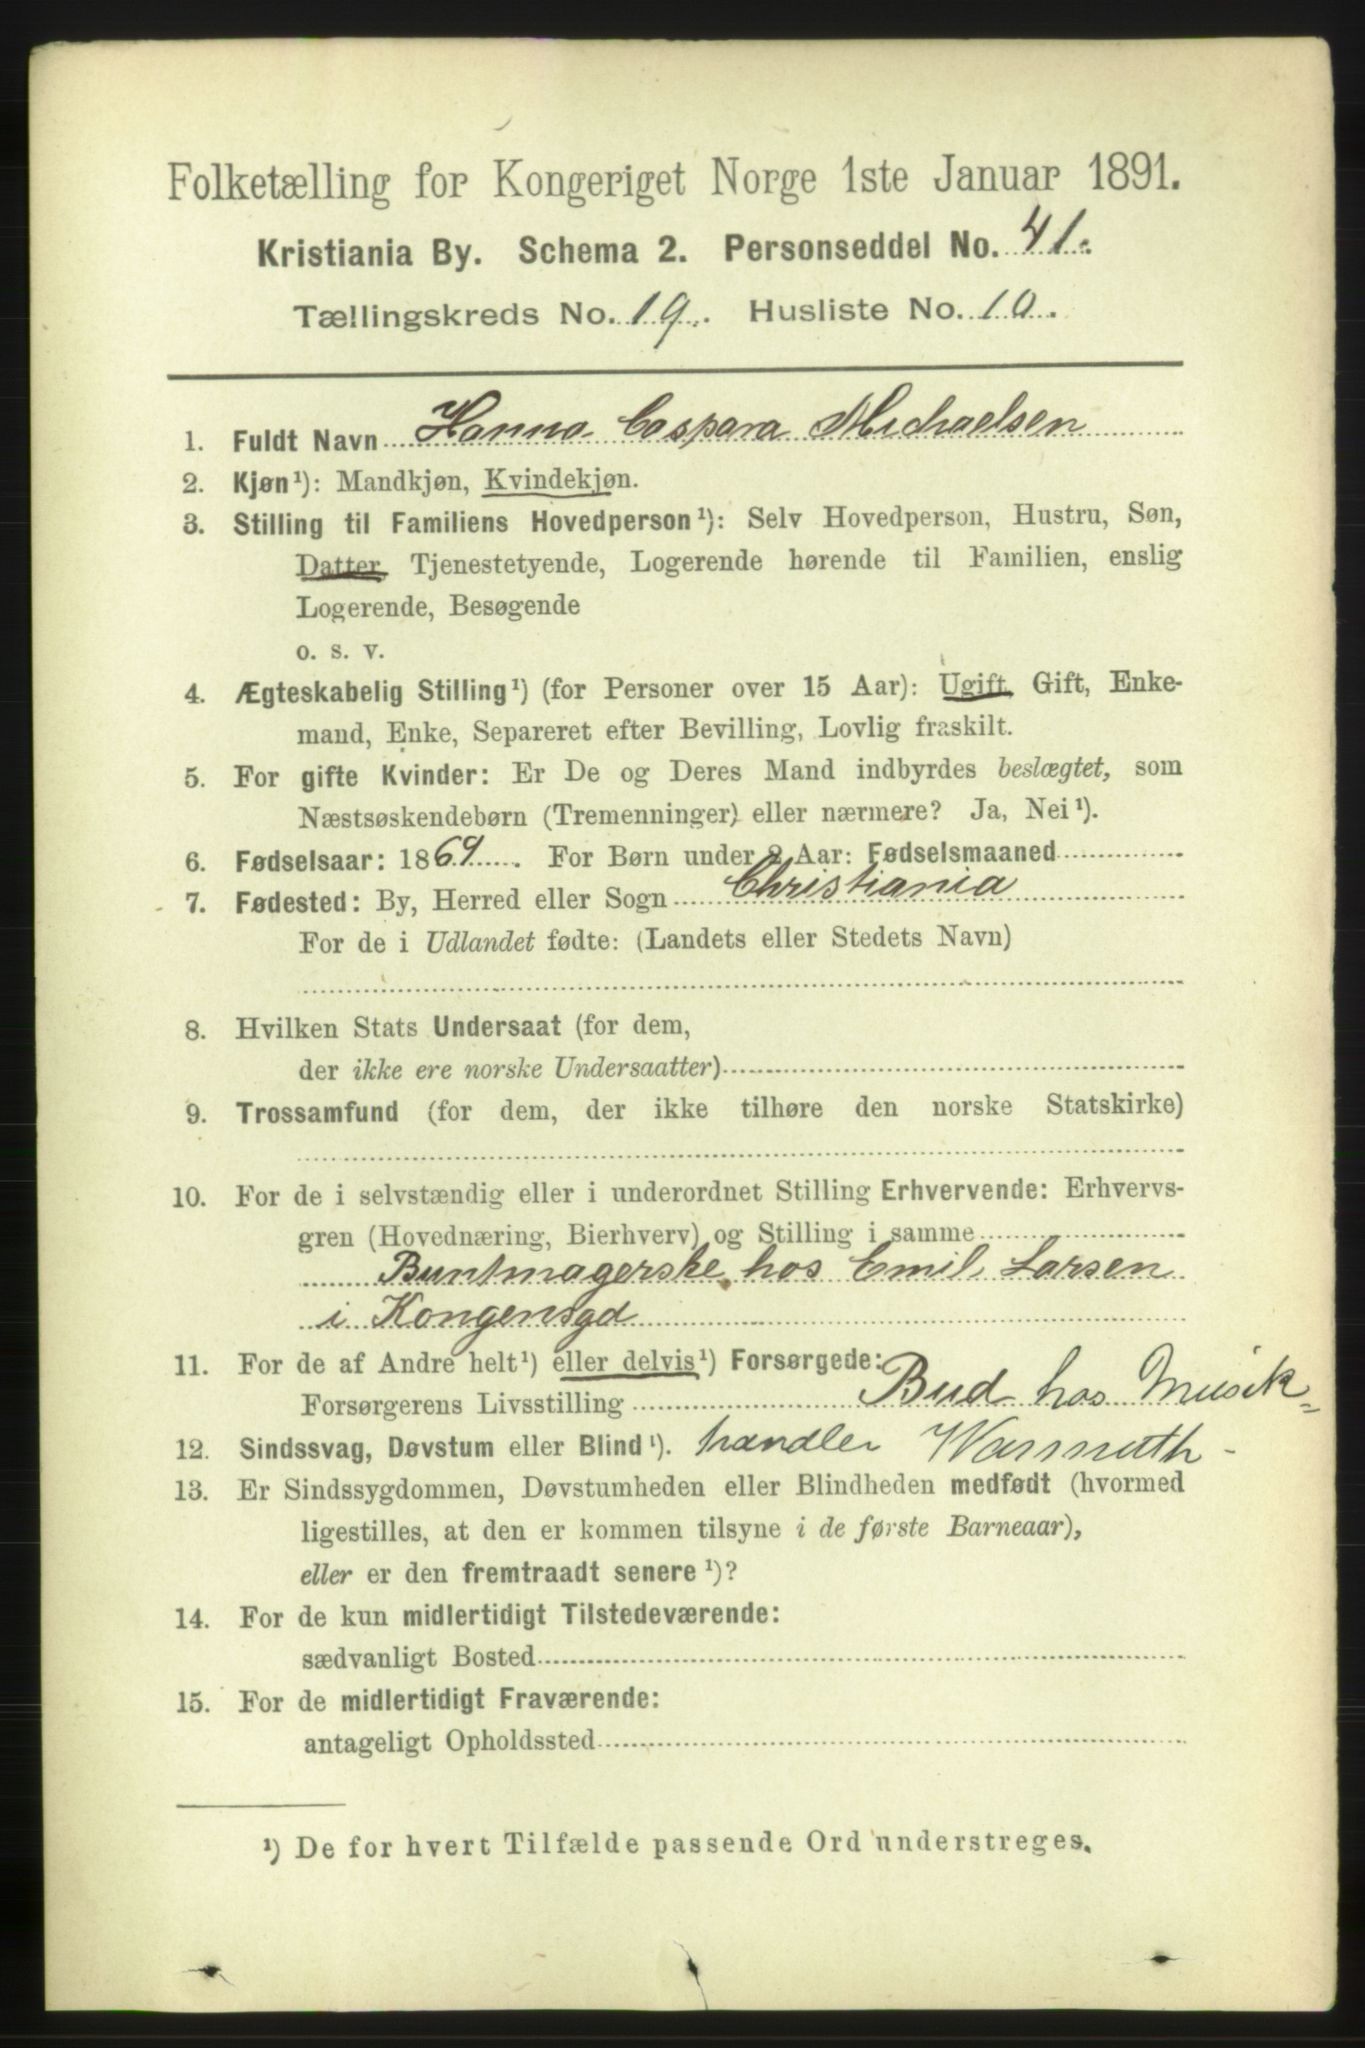 Folketælling for Kongeriget Norge 1ste Januar 1891.
Kristiania By. Schema 2. Personseddel No. 41.
Tællingskreds No. 19. Husliste No. 10.
1. Fuldt Navn Hanna Caspara Michaelsen
2. Kjøn¹): Mandkjøn, Kvindekjøn.
3. Stilling til Familiens Hovedperson¹): Selv Hovedperson, Hustru, Søn,
Datter, Tjenestetyende, Logerende hørende til Familien, enslig
Logerende, Besøgende
o. s. v.
4. Ægteskabelig Stilling¹) (for Personer over 15 Aar): Ugift, Gift, Enke-
mand, Enke, Separeret efter Bevilling, Lovlig fraskilt.
5. For gifte Kvinder: Er De og Deres Mand indbyrdes beslægtet, som
Næstsøskendebørn (Tremenninger) eller nærmere? Ja, Nei¹).
6. Fødselsaar: 1869. For Børn under 2 Aar: Fødselsmaaned
7. Fødested: By, Herred eller Sogn Christiania
For de i Udlandet fødte: (Landets eller Stedets Navn)
8. Hvilken Stats Undersaat (for dem,
der ikke ere norske Undersaatter)
9. Trossamfund (for dem, der ikke tilhøre den norske Statskirke)
10. For de i selvstændig eller i underordnet Stilling Erhvervende: Erhvervs-
gren (Hovednæring, Bierhverv) og Stilling i samme
Buntmagerske hos Emil Larsen
i Kongensgd
11. For de af Andre helt¹) eller delvis¹) Forsørgede:
Forsørgerens Livsstilling Bud hos Musik=
12. Sindssvag, Døvstum eller Blind¹). handler Warmuth -
13. Er Sindssygdommen, Døvstumheden eller Blindheden medfødt (hvormed
ligestilles, at den er kommen tilsyne i de første Barneaar),
eller er den fremtraadt senere¹)?
14. For de kun midlertidigt Tilstedeværende:
sædvanligt Bosted
15. For de midlertidigt Fraværende:
antageligt Opholdssted
¹) De for hvert Tilfælde passende Ord understreges.